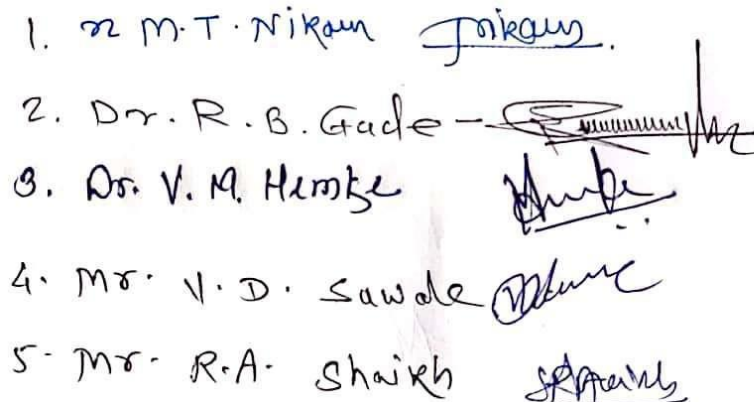 1. M.T. Nikam
2. Dr. R.B. Gade -
3. Dr. V.M. Hemke
4. Mr. V.D. Sawale
5. Mr. R.A. Shaikh